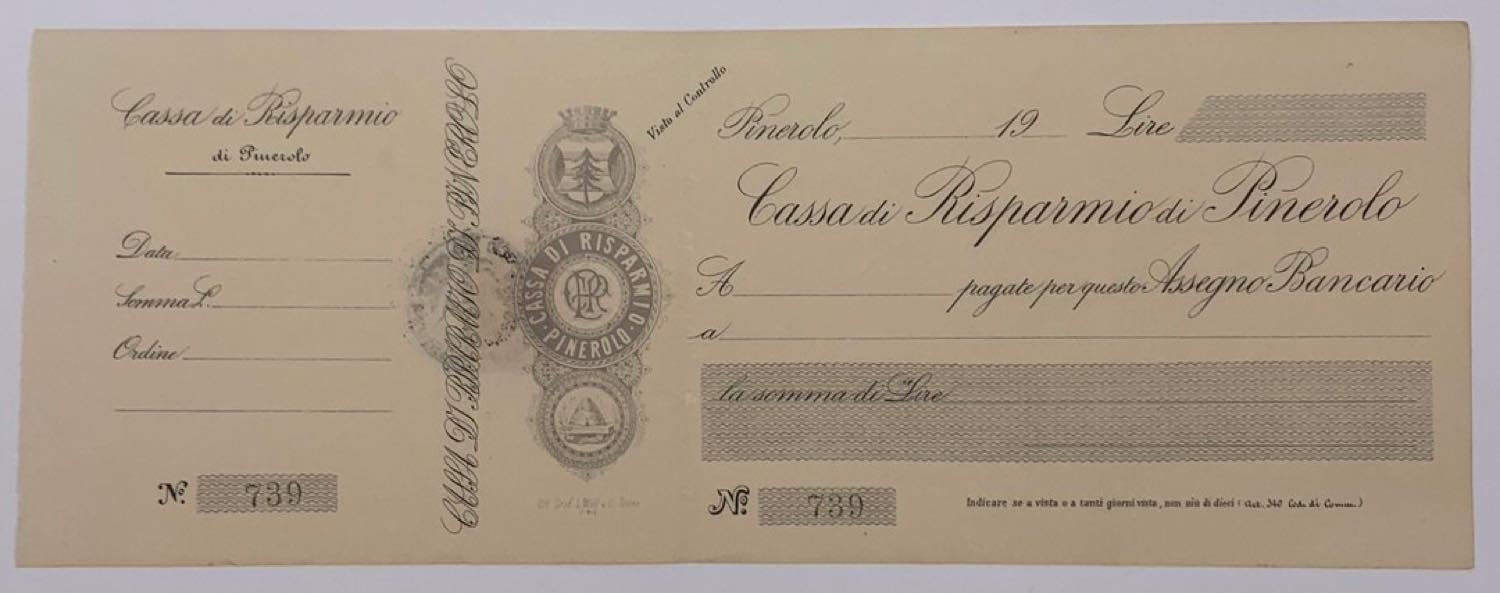 Cassa di Risparmio
di Pinerolo
Data
Somma L.
Ordine
N.º 739
CASSA DI RISPARMIO DI PINEROLO
CASSA DI RISPARMIO
PINEROLO
Visto al Controllo
Pinerolo, 19 Lire
Cassa di Risparmio di Pinerolo
A pagate per questo Assegno Bancario
a
la somma di Lire
N.º 739
Indicare se a vista o a tanti giorni vista, non più di dieci (Art. 340 Cod. di Comm.)